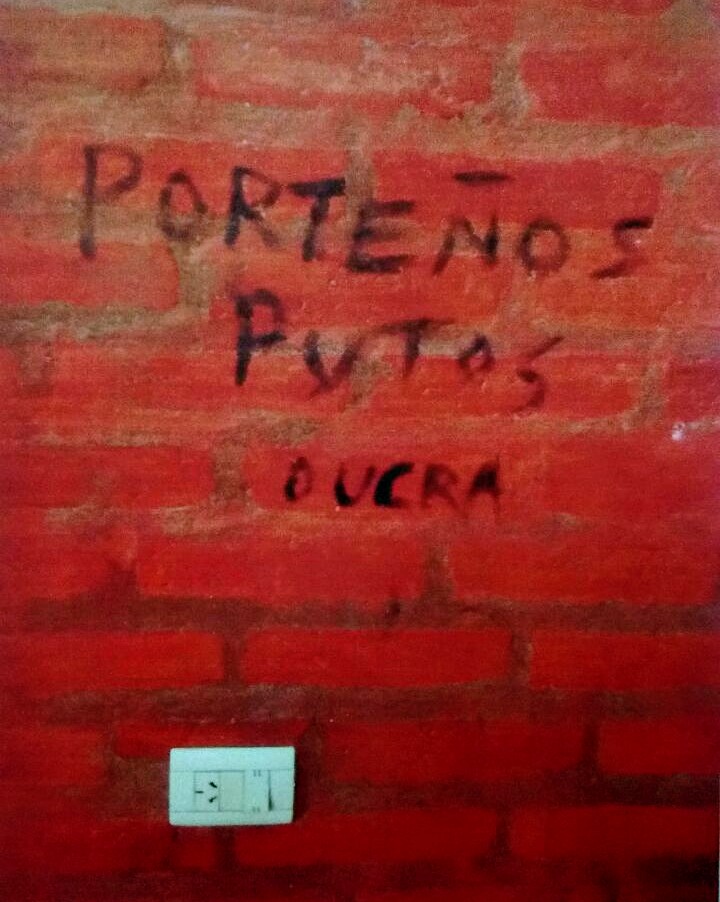 PORTEÑOS
PUTOS
OUCRA